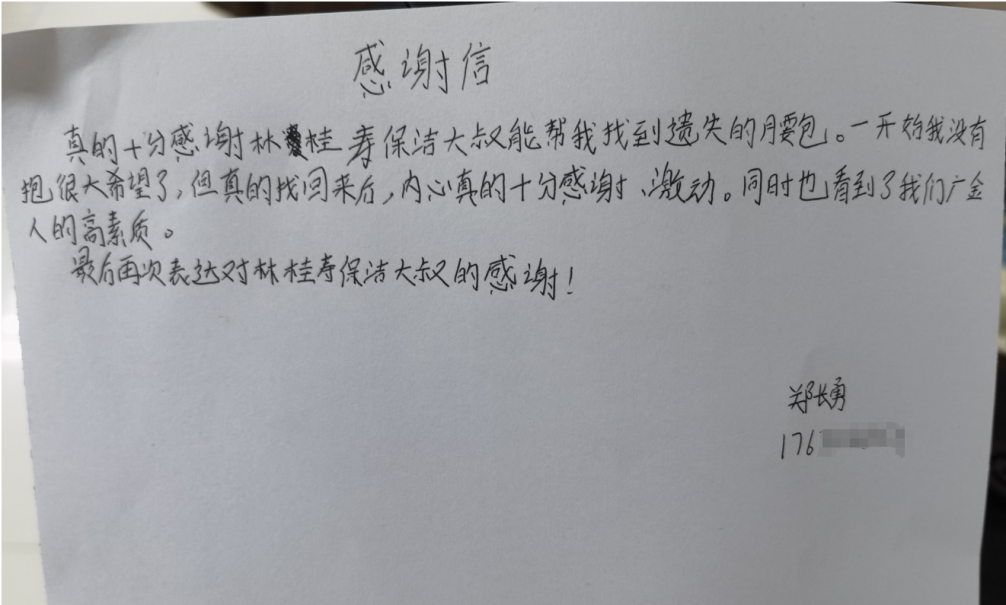 感谢信
真的十分感谢林桂寿保洁大叔能帮我找到遗失的腰包。一开始我没有
抱很大希望了,但真的找回来后,内心真的十分感谢、激动。同时也看到了我们广金
人的高素质。
最后再次表达对林桂寿保洁大叔的感谢!
郑长勇
176